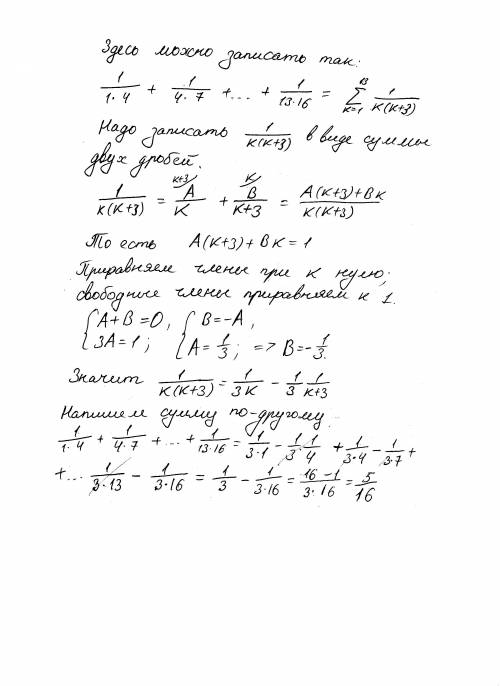 Здесь можно записать так:
1/(1·4) + 1/(4·7) + ... + 1/(13·16) = ∑_{к=1}^{13} 1/(к(к+3))
Надо записать 1/(к(к+3)) в виде суммы
двух дробей.
1/(к(к+3)) = А/к (к+3) + В/(к+3) (к) = (А(к+3)+Вк)/(к(к+3))
То есть А(к+3)+Вк=1
Приравняем члены при к нулю;
свободные члены приравняем к 1.
{А+В=0, {В=-А,
{3А=1; {А=1/3; => В=-1/3.
Значит 1/(к(к+3)) = 1/(3к) - 1/3 1/(к+3)
Напишем сумму по-другому
1/(1·4) + 1/(4·7) + ... + 1/(13·16) = 1/(3·1) - 1/3·1/4 + 1/(3·4) - 1/(3·7) +
+... 1/(3·13) - 1/(3·16) = 1/3 - 1/(3·16) = (16-1)/(3·16) = 5/16